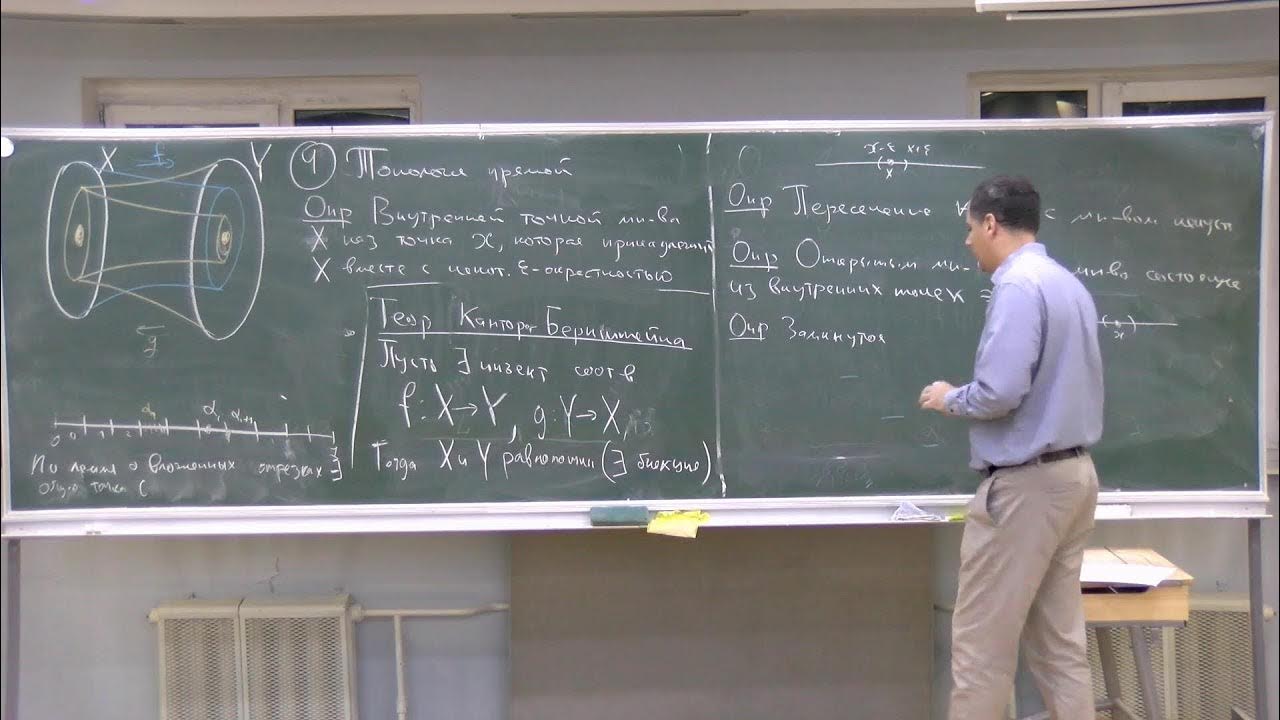 X f Y
g
0
По лемме о вложенных отрезках ∃
общ. точка C
9 Топология прямой
Опр Внутренней точкой мн-ва
X наз точка x, которая принадлежит
X вместе с некот. ε-окрестностью
Теор Кантора Бернштейна
Пусть ∃ инъект соотв
f: X→Y, g: Y→X,
Тогда X и Y равномощн (∃ биекция)
x-ε x+ε
x
Опр Пересечение с мн-вом непуст
Опр Открытым мн-ва состоящее
из внутренних точек
x
Опр Замкнутое